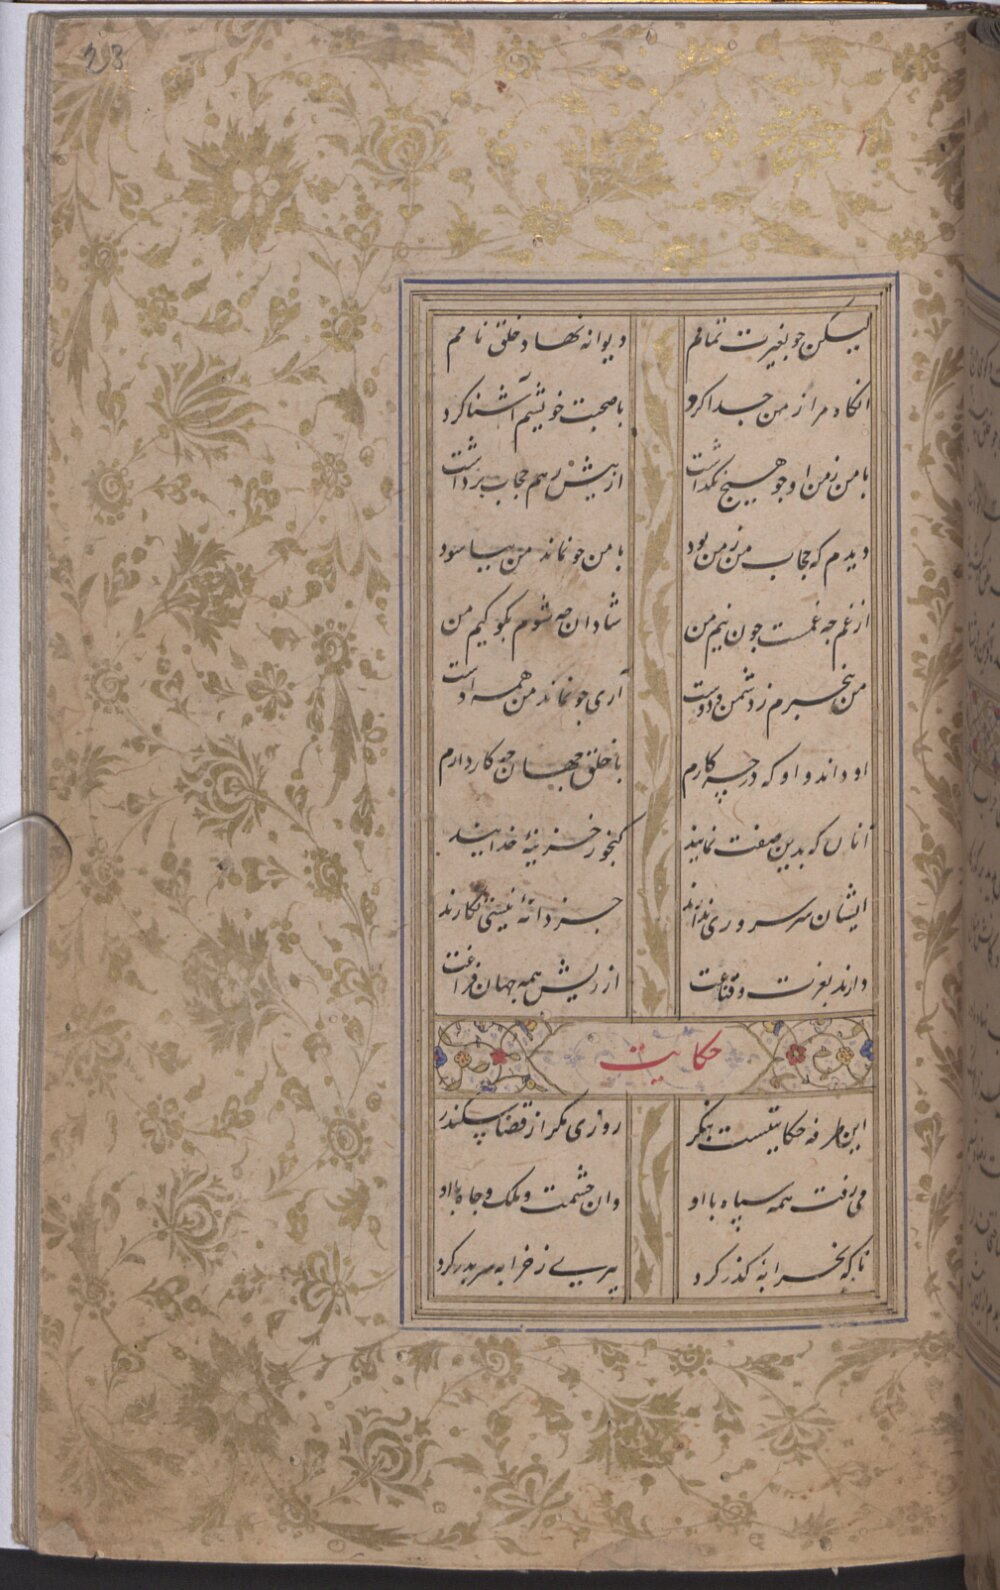 23
لیکن چو بغیرت تمامم دیوانه نهاد خلق نامم
انکاه مرا ز من جدا کرد با صحبت خویشم آشنا کرد
با من ز من او چو هیچ نکذاشت از پیش رهم حجاب برداشت
دیدم که حجاب من ز من بود با من چو نماند من بیاسود
از غم چه غمست چون نیم من شادان چه شوم بکو کیم من
من بیخبرم ز دشمن و دوست آری چو نماند من همه اوست
او داند و او که در چه کارم با خلق جهان چه کار دارم
آنان که بدین صفت نمایند کنجور خزینهٔ خدایند
ایشان سر سروری ندارند جز دانهٔ نیستی نکارند
دارند بعزت و قناعت از ریش همه جهان فراغت
حکایت
این طرفه حکایتیست بنکر روزی مکر از قضا سکندر
می رفت همه سپاه با او وان حشمت و ملک و جاه با او
ناکه بخرابهٔ کذر کرد پیریی ز خرابه سر بدر کرد